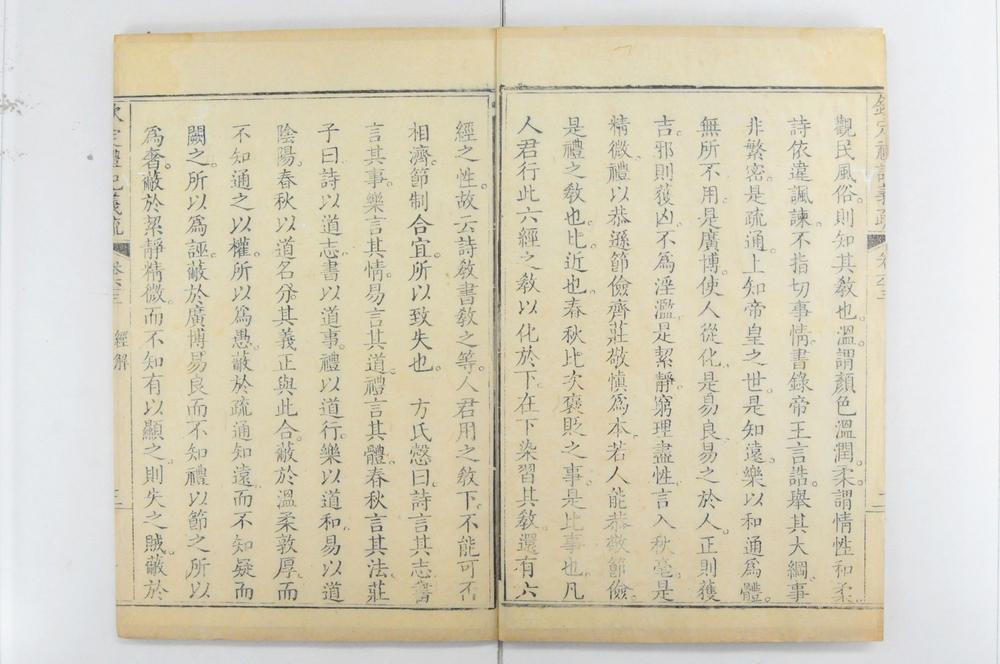 觀民風俗。則知其敎也。溫。謂顏色溫潤。柔。謂情性和柔
詩依違諷諫。不指切事情。書錄帝王言誥。舉其大綱。事
非繁密。是疏通。上知帝皇之世。是知遠。樂以和通爲體。
無所不用。是廣博。使人從化。是易良。易之於人。正則獲
吉。邪則獲凶。不爲淫濫。是絜靜。窮理盡性。言入秋毫。是
精微。禮以恭遜節儉齊莊敬愼爲本。若人能恭敬節儉。
是禮之敎也。比。近也。春秋比次褒貶之事。是比事也。凡
人君行此六經之敎以化於下。在下染習其敎。還有六
經之性。故云詩敎書敎之等。人君用之敎下。不能可否
相濟。節制合宜。所以致失也。　方氏慤曰。詩言其志。書
言其事。樂言其情。易言其道。禮言其體。春秋言其法。莊
子曰。詩以道志。書以道事。禮以道行。樂以道和。易以道
陰陽。春秋以道名分。其義正與此合。蔽於溫柔敦厚。而
不知通之以權。所以爲愚。蔽於疏通知遠。而不知疑而
闕之。所以爲誣。蔽於廣博易良而不知禮以節之。所以
爲奢。蔽於絜靜精微。而不知有以顯之。則失之賊。蔽於
欽定禮記義疏
卷六十三
經解
三
欽定禮記義疏
卷六十三
二